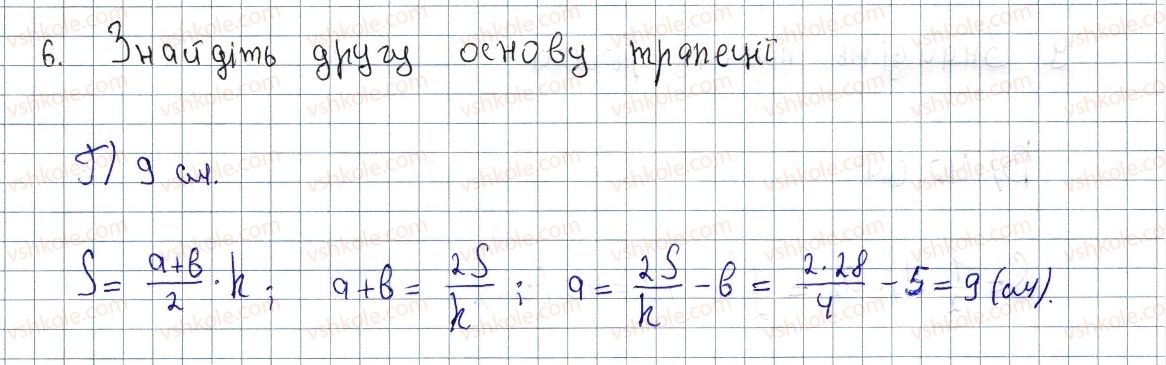 6. Знайдіть другу основу трапеції
Г) 9 см.
S = (a+b)/2 · h; a+b = 2S/h; a = 2S/h − b = 2·28/4 − 5 = 9 (см).
vshkole.com